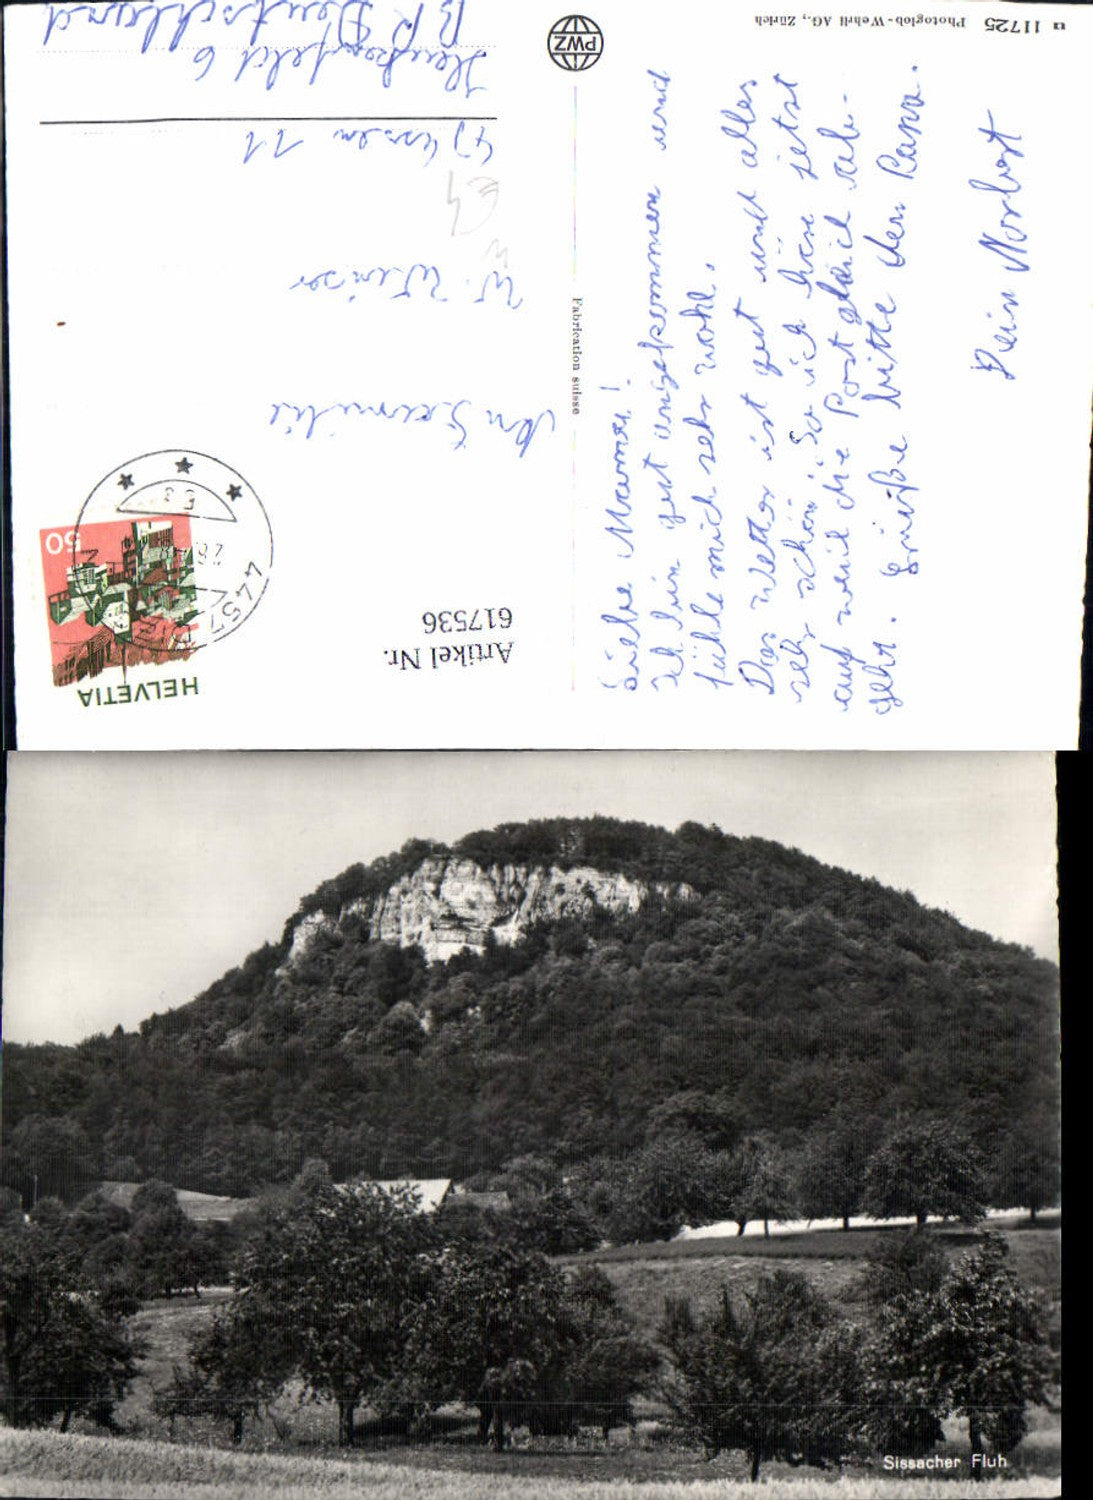 Liebe Mama!
Ich bin gut angekommen und
fühle mich sehr wohl.
Das Wetter ist gut und alles
sehr schön. So ich höre jetzt
auf weil die Post gleich ab-
geht. Grüße bitte den Papa.
Dein Norbert
Fabrication suisse
PWZ
u 11725 Photoglob-Wehrli AG., Zürich
HELVETIA
50
4457
Artikel Nr.
617536
An Familie
W. Winser
43 Essen 11
6
BR Deutschland
Sissacher Fluh